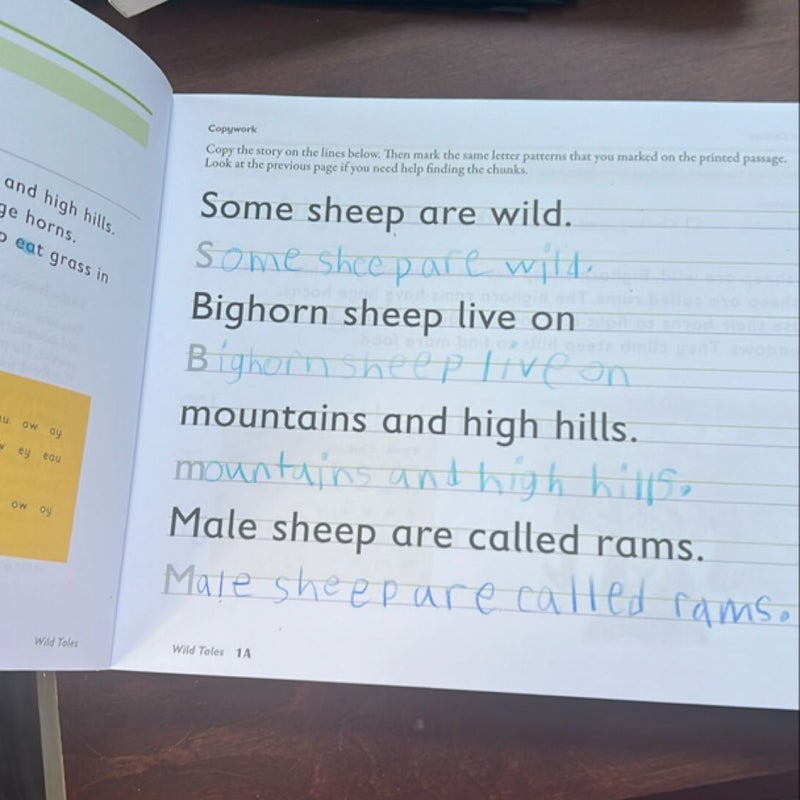 and high hills.
ge horns.
o eat grass in
u ow ay
ey eau
ow oy
Wild Tales
Copywork
Copy the story on the lines below. Then mark the same letter patterns that you marked on the printed passage.
Look at the previous page if you need help finding the chunks.
Some sheep are wild.
Some sheep are wild.
Bighorn sheep live on
Bighorn sheep live on
mountains and high hills.
mountains and high hills.
Male sheep are called rams.
Male sheep are called rams.
Wild Tales 1A